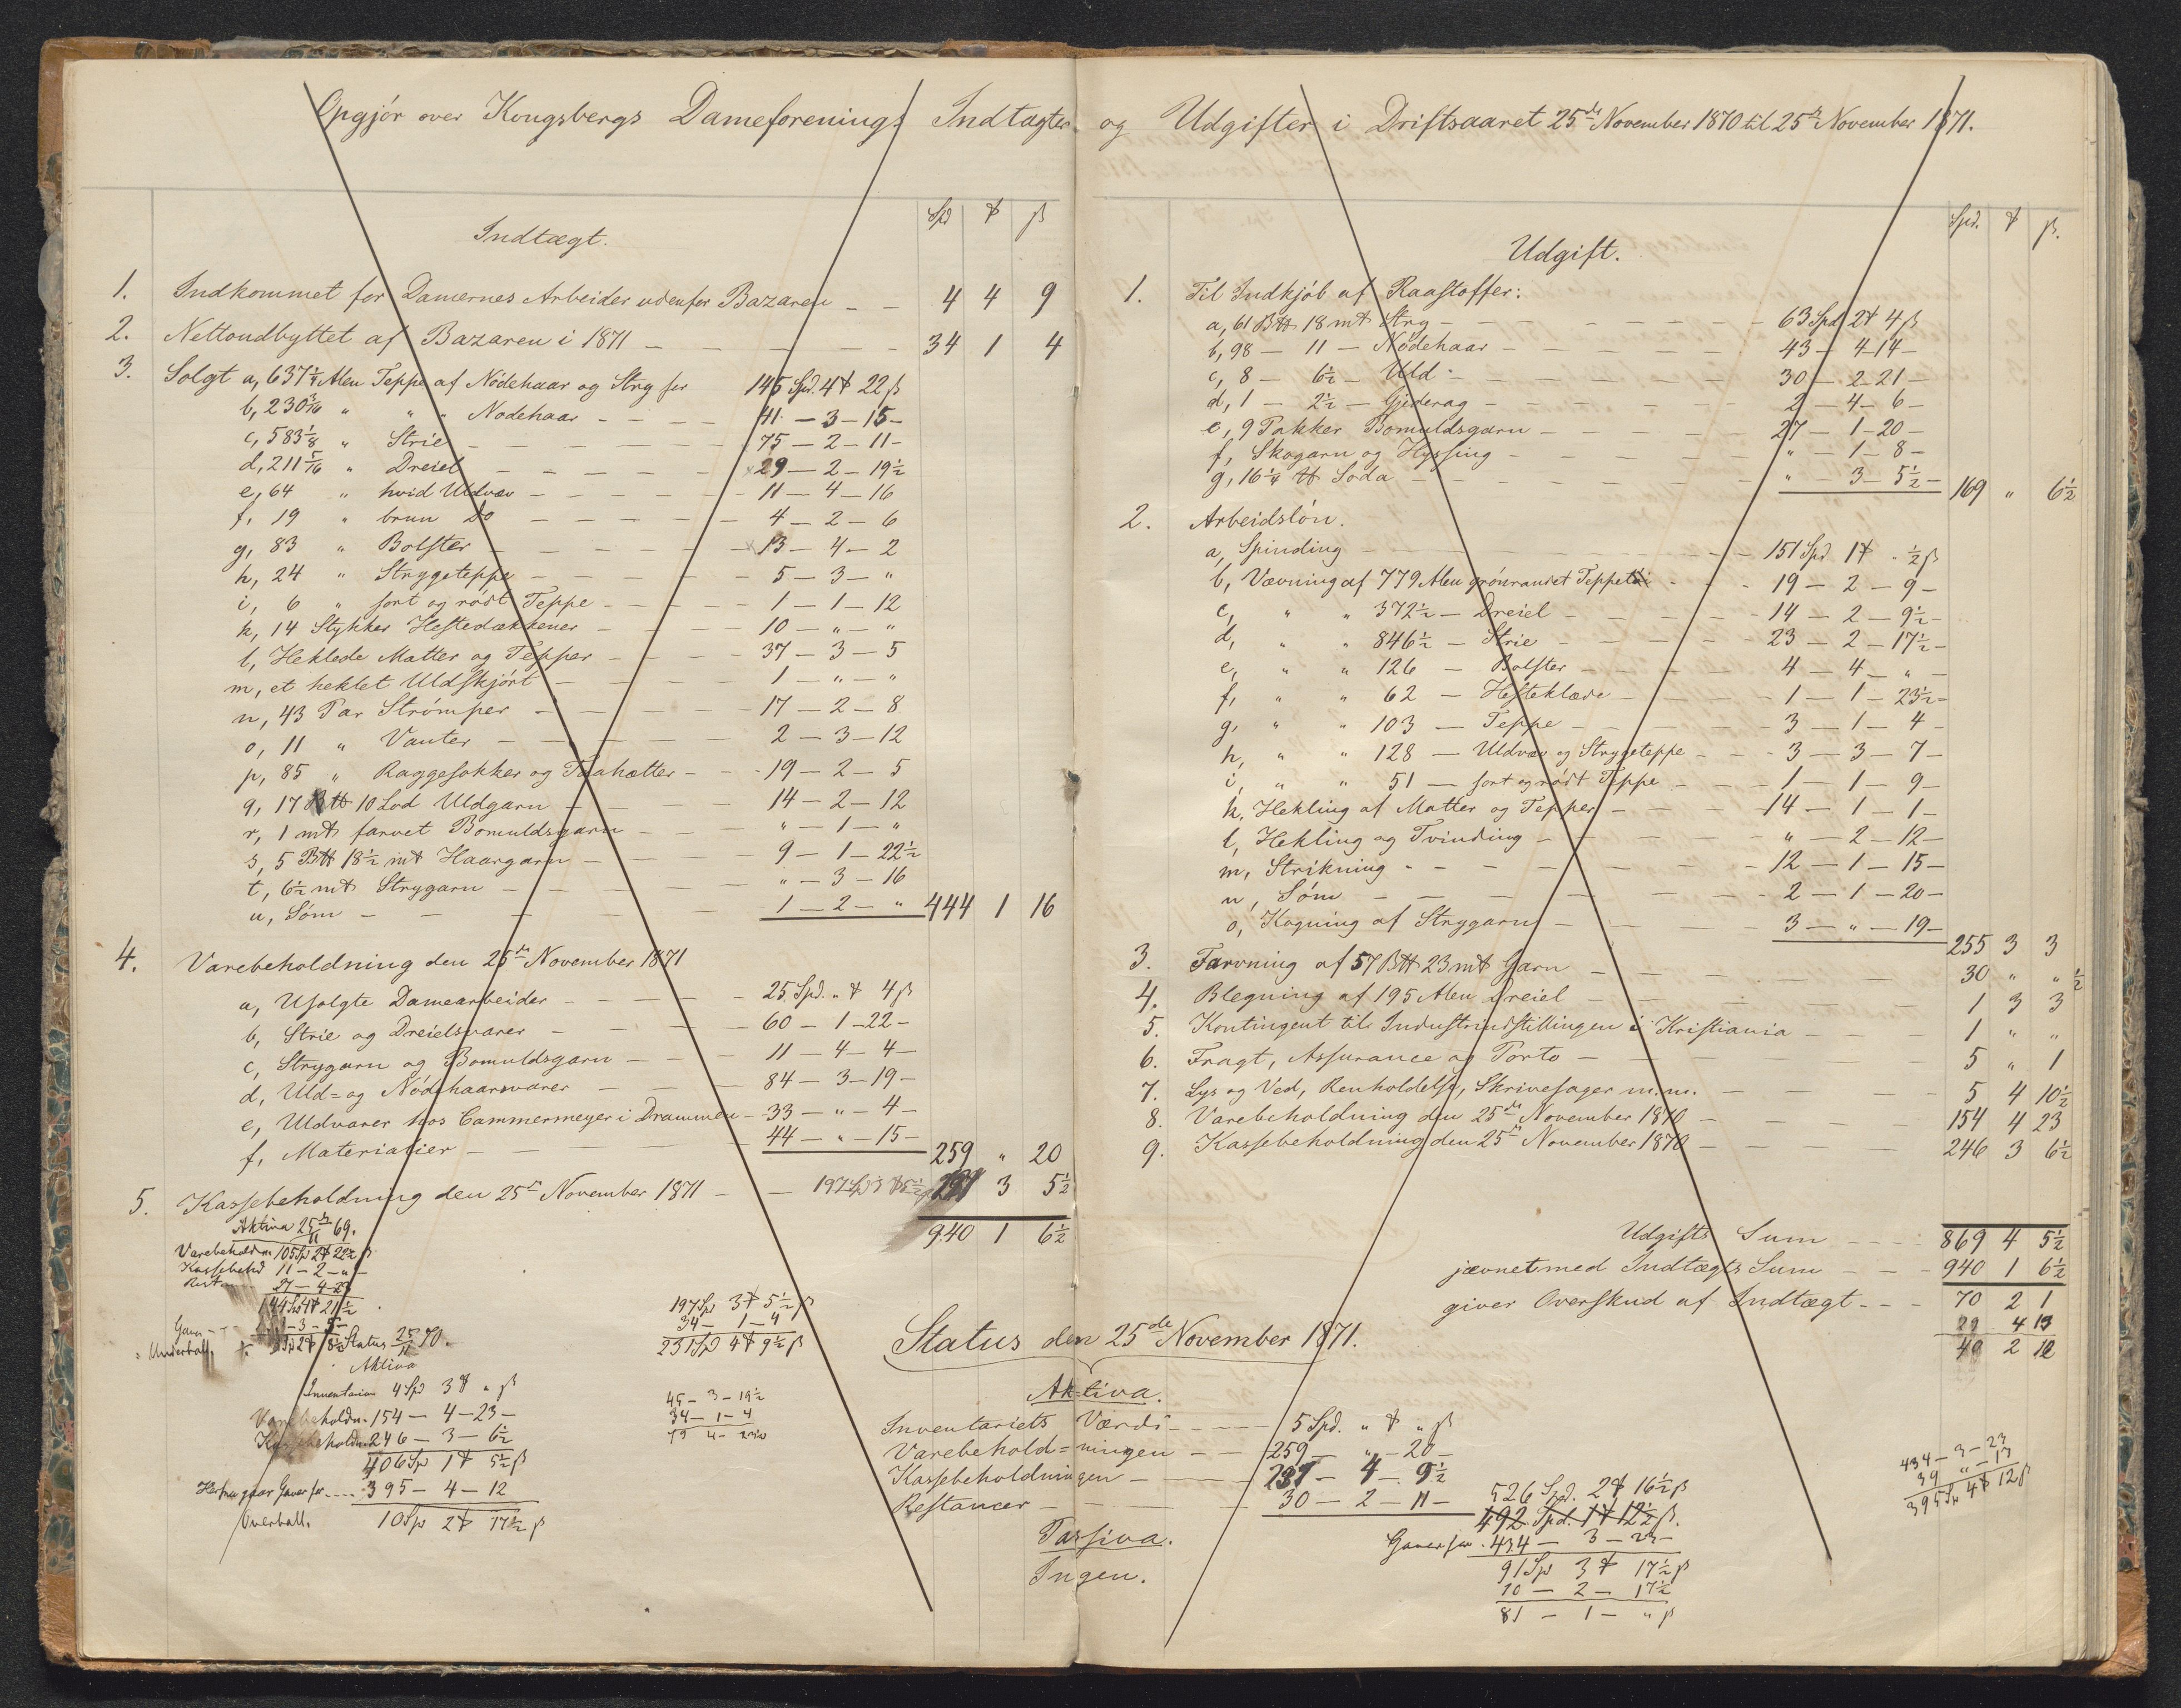 Opgjör over Kongsbergs Dameforenings Indtægter og Udgifter i Driftsaaret 25de November 1870 til 25de November 1871.
Indtægt.
Spd ₰ ß
1. Indkommet for Damernes Arbeider udenfor Bazaren - - 4 4 9
2. Nettoudbyttet af Bazaren i 1871 - - - - - 34 1 4
3. Solgt a, 637¼ Alen Teppe af Nödehaar og Stry for 145 Spd. 4 ₰ 22 ß
b, 230 3/16 " " " Nödehaar - - - - 41 - 3 - 15 -
c, 583 1/8 " Strie - - - - - 75 - 2 - 11 -
d, 211 5/16 " Dreiel - - - - - × 29 - 2 - 19½
e, 64 " hvid Uldvæv - - - - - 11 - 4 - 16
f, 19 " brun Do - - - - - 4 - 2 - 6
g, 83 " Bolster - - - - - × 13 - 4 - 2
h, 24 " Strygeteppe - - - - - 5 - 3 - "
i, 6 " sort og rödt Teppe - - - - 1 - 1 - 12
k, 14 Stykker Hestedækkener - - - - 10 - " - "
l, Heklede Matter og Tepper - - - - 37 - 3 - 5
m, et heklet Uldskjört - - - - 1 - " - "
n, 43 Par Strömper - - - - - 17 - 2 - 8
o, 11 " Vanter - - - - - 2 - 3 - 12
p, 85 " Raggesokker og Taahætter - - - 19 - 2 - 5
q, 17 B℔ 10 Lod Uldgarn - - - - 14 - 2 - 12
r, 1 m℔ farvet Bomuldsgarn - - - " - 1 - "
s, 5 B℔ 18½ m℔ Haargarn - - - - 9 - 1 - 22½
t, 6½ m℔ Strygarn - - - - " - 3 - 16
u, Söm - - - - - 1 - 2 - " 444 1 16
4. Varebeholdning den 25de November 1871
a, Usolgte Damearbeider - - - - - 25 Spd. " ₰ 4 ß
b, Strie og Dreielsvarer - - - - 60 - 1 - 22 -
c, Strygarn og Bomuldsgarn - - - 11 - 4 - 4 -
d, Uld= og Nödehaarsvarer - - - 84 - 3 - 19 -
e, Uldvarer hos Cammermeyer i Drammen - 33 - " - 4 -
f, Materialier - - - - - 44 - " - 15 - 259 " 20
5. Kassebeholdning den 25de November 1871 - - 197 Spd 3 ₰ 5½ ß 3 5½
940 1 6½
Aktiva 25/11 69.
Varebeholdn. 105 Spd 2 ₰ 22½ ß
Kassebehd 11 - 2 - " -
Rest 27 - 4 - 23
144 Spd 4 ₰ 21½
Gaver - -
Underball.
Status 25/11 70.
Aktiva
Inventariu 4 Spd 3 ₰ " ß
Varebeholdn. 154 - 4 - 23 -
Kassebeholdn. 246 - 3 - 6½
406 Spd 1 ₰ 5½ ß
Herfra gaar Gaver for .... 395 - 4 - 12
Overball. 10 Spd 2 ₰ 17½ ß
197 Spd 3 ₰ 5½ ß
34 - 1 - 4
231 Spd 4 ₰ 9½ ß
45 - 3 - 19½
34 - 1 - 4
Udgift.
Spd. ₰ ß.
1. Til Indkjöb af Raastoffer:
a, 61 B℔ 18 m℔ Stry - - - - - - - 63 Spd 2 ₰ 4 ß
b, 98 - 11 - Nödehaar - - - - - 43 - 4 - 14 -
c, 8 - 6½ - Uld - - - - - - 30 - 2 - 21 -
d, 1 - 2½ - Gjederag - - - - - 2 - 4 - 6 -
e, 9 Pakker Bomuldsgarn - - - - - 27 - 1 - 20 -
f, Skogarn og Hyssing - - - - - " - 1 - 8 -
g, 16¼ ℔ Soda - - - - - - " - 3 - 5½ - 169 " 6½
2. Arbeidslön.
a, Spinding - - - - - - 151 Spd 1 ₰ " ½ ß
b, Vævning af 779 Alen grönrandet Teppetöi - - 19 - 2 - 9 -
c, " " 372½ - Dreiel - - - - 14 - 2 - 9½ -
d, " " 846½ - Strie - - - - 23 - 2 - 17½ -
e, " " 126 - Bolster - - - - 4 - 4 - " -
f, " " 62 - Hesteklæde - - - - 1 - 1 - 23½ -
g, " " 103 - Teppe - - - - 3 - 1 - 4 -
h, " " 128 - Uldvæv og Strygeteppe - - - 3 - 3 - 7 -
i, " " 51 - sort og rödt Teppe - - - 1 - 1 - 9 -
k, Hekling af Matter og Tepper - - - - 14 - 1 - 1 -
l, Hekling og Tvinding - - - - - " - 2 - 12 -
m, Strikning - - - - - - 12 - 1 - 15 -
n, Söm - - - - - - 2 - 1 - 20 -
o, Kogning af Strygarn - - - - 3 - " - 19 - 255 3 3
3. Farvning af 57 B℔ 23 m℔ Garn - - - - - 30 " " ½
4. Blegning af 195 Alen Dreiel - - - - - 1 3 3
5. Kontingent til Industriudstillingen i Kristiania - - - 1 " "
6. Fragt, Assurance og Porto - - - - - 5 " 1
7. Lys og Ved, Renholdelse, Skrivesager m.m. - - - - 5 4 10½
8. Varebeholdning den 25de November 1870 - - - - 154 4 23
9. Kassebeholdning den 25de November 1870 - - - - 246 3 6½
Udgifts Sum - - - 869 4 5½
jævnet med Indtægts Sum - - - 940 1 6½
giver Overskud af Indtægt - - - 70 2 1
Status den 25de November 1871.
Aktiva.
Inventariets Værdi - - - - 5 Spd. " ₰ " ß
Varebehold=ningen - - 259 - " - 20 -
Kassebeholdningen - - - 231 - 4 - 9½
Restancer - - - - 30 - 2 - 11 - 526 Spd. 2 ₰ 16½ ß
492 Spd. 1 ₰ 12½ ß.
Passiva. Gaver for . 434 - 3 - 23 -
Ingen. 91 Spd 3 ₰ 17½ ß
10 - 2 - 17½
81 - 1 - " ß
434 - 3 - 23
39 " - 17
395 Spd 4 ₰ 12 ß